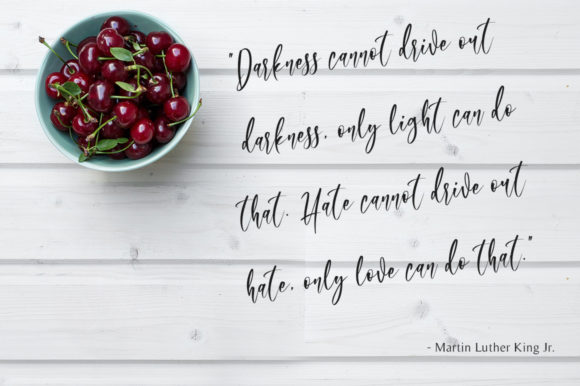 "Darkness cannot drive out
darkness, only light can do
that. Hate cannot drive out
hate, only love can do that."
- Martin Luther King Jr.